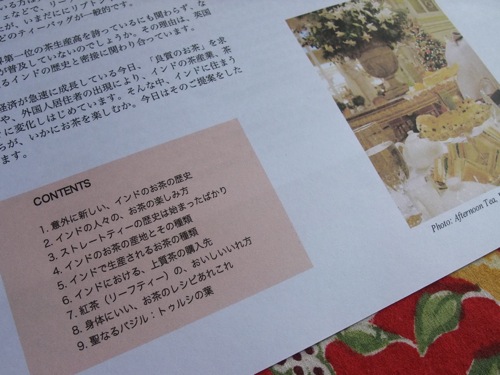 が、いまだにリプトン
どのティーバッグが一般的です。
第一位の茶生産高を誇っているにも関わらず、な
が普及していないのでしょうか。その理由は、英国
るインドの歴史と密接に関わり合っています。
経済が急速に成長している今日、「良質のお茶」を求
や、外国人居住者の出現により、インドの茶産業、茶
に変化しはじめています。そんな中、インドに住まう
ちが、いかにお茶を楽しむか。今日はそのご提案をした
ます。
CONTENTS
1. 意外に新しい、インドのお茶の歴史
2. インドの人々の、お茶の楽しみ方
3. ストレートティーの歴史は始まったばかり
4. インドのお茶の産地とその種類
5. インドで生産されるお茶の種類
6. インドにおける、上質茶の購入先
7. 紅茶（リーフティー）の、おいしいいれ方
8. 身体にいい、お茶のレシピあれこれ
9. 聖なるバジル：トゥルシの葉
Photo: Afternoon Tea,